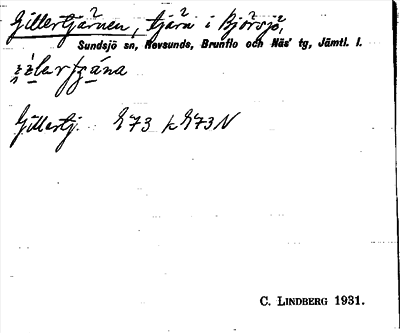 Gillertjärnen, tjärn i Björsjö,
Sundsjö sn, Revsunds, Brunflo och Näs' tg, Jämtl. l.
Gillertj. E73 k E73N
C. LINDBERG 1931.